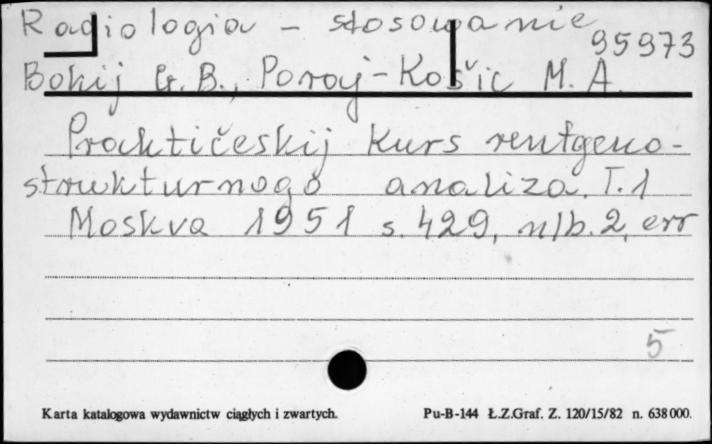 Radiologia - stosowanie
95973
Bokij G. B., Poraj-Košic M. A.
Praktičeskij kurs rentgeno-
strukturnogo analiza. T. 1
Moskva 1951 s. 429, nlb. 2, err
5
Karta katalogowa wydawnictw ciągłych i zwartych. Pu-B-144 Ł.Z.Graf. Z. 120/15/82 n. 638000.